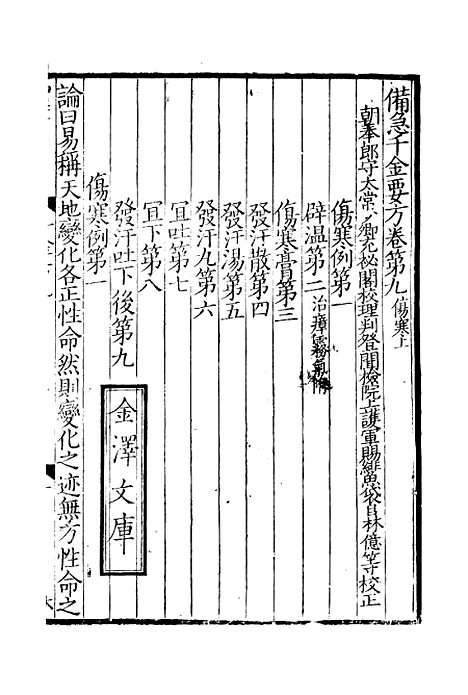 備急千金要方卷第九 傷寒上
朝奉郎守太常少卿充秘閣校理判登聞檢院上護軍賜緋魚袋臣林億等校正
傷寒例第一
辟温第二 治瘴霧氣附
傷寒膏第三
發汗散第四
發汗湯第五
發汗丸第六
宜吐第七
宜下第八
發汗吐下後第九
金澤文庫
傷寒例第一
論曰易稱天地變化各正性命然則變化之迹無方性命之